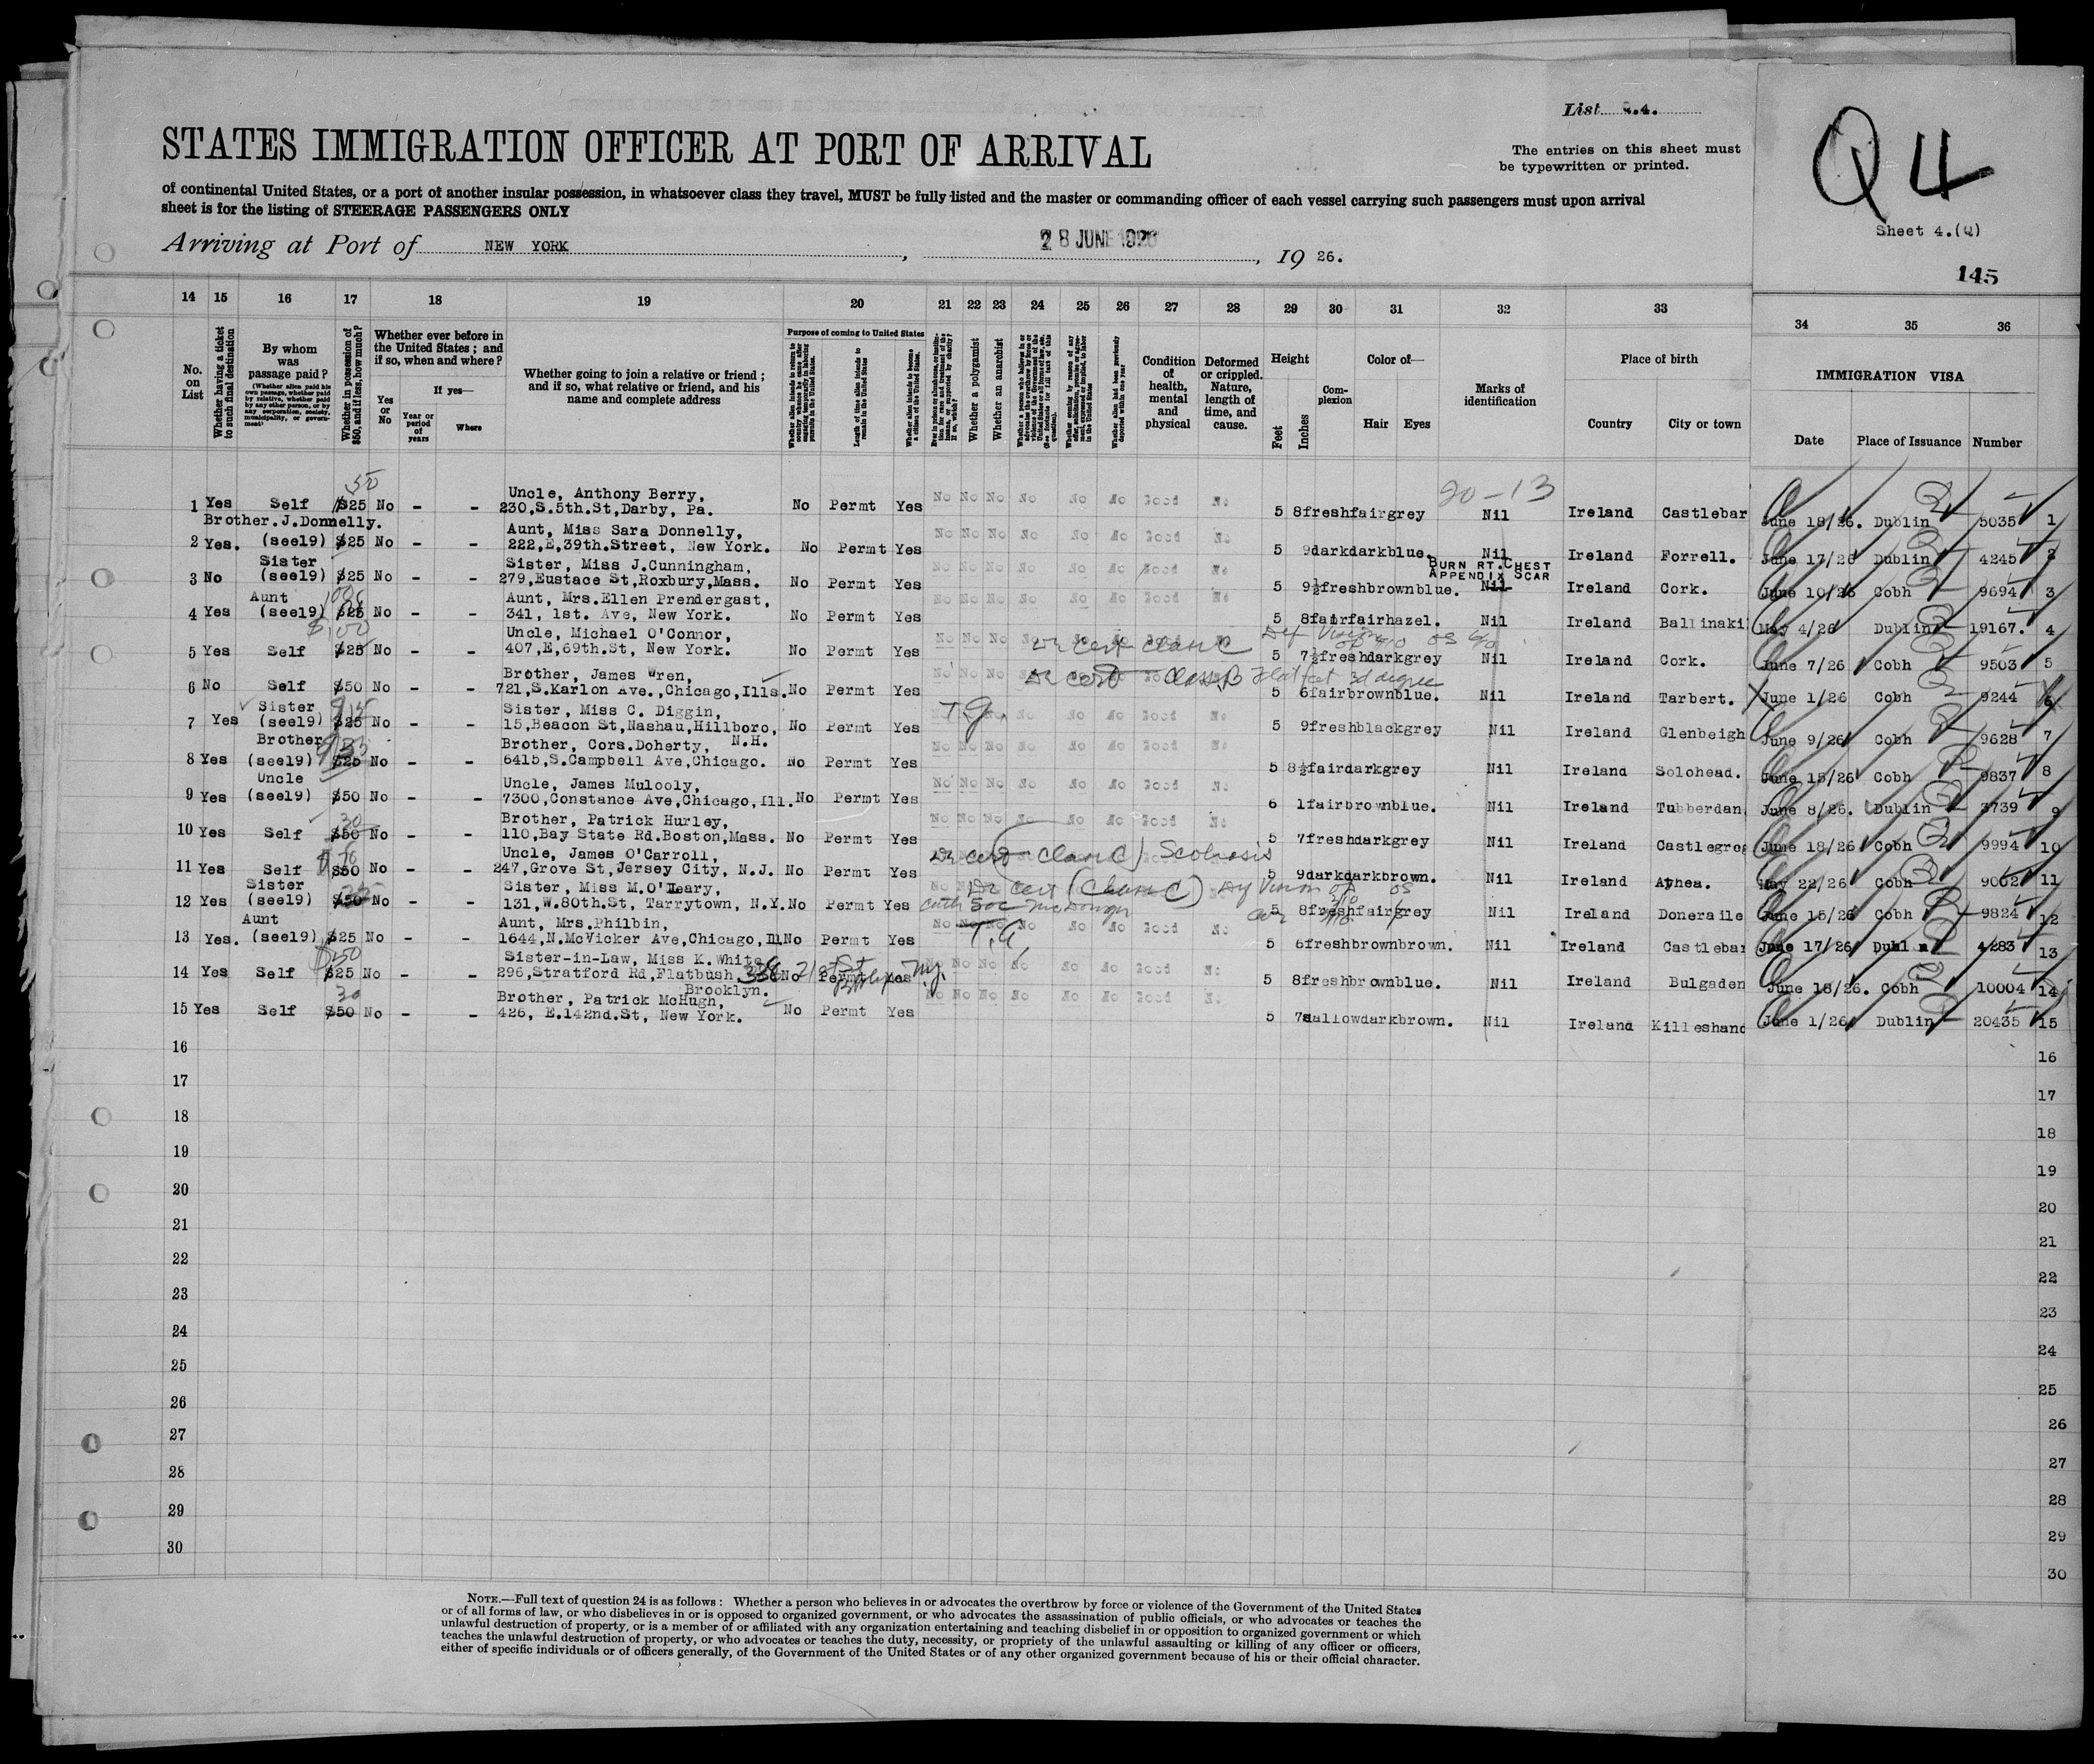 List Q.4.
STATES IMMIGRATION OFFICER AT PORT OF ARRIVAL
The entries on this sheet must
be typewritten or printed.
Q4
Sheet 4.(Q)
145
of continental United States, or a port of another insular possession, in whatsoever class they travel, MUST be fully listed and the master or commanding officer of each vessel carrying such passengers must upon arrival
sheet is for the listing of STEERAGE PASSENGERS ONLY
Arriving at Port of NEW YORK, 28 JUNE 1926, 19 26.
14 15 16 17 18 19 20 21 22 23 24 25 26 27 28 29 30 31 32 33 34 35 36
No. on List
Whether having a ticket to such final destination
By whom was passage paid?
(Whether alien paid his own passage, whether paid by relative, whether paid by any other person, or by any corporation, society, municipality, or government)
Whether in possession of $50, and if less, how much?
Whether ever before in the United States; and if so, when and where?
Yes or No
If yes—
Year or period of years
Where
Whether going to join a relative or friend; and if so, what relative or friend, and his name and complete address
Purpose of coming to United States
Length of time alien intends to remain in the United States
Whether alien intends to become a citizen of the United States.
Whether a polygamist
Whether an anarchist
Whether alien had been previously deported within one year
Condition of health, mental and physical
Deformed or crippled. Nature, length of time, and cause.
Height
Feet
Inches
Complexion
Color of—
Hair Eyes
Marks of identification
Place of birth
Country City or town
IMMIGRATION VISA
Date Place of Issuance Number
20-13
1 Yes Self $25 50 No - - Uncle, Anthony Berry,
230,S.5th.St,Darby, Pa. No Permt Yes No No No No No No Good No 5 8 fresh fair grey Nil Ireland Castlebar June 18/26. Dublin 5035 1
Brother.J.Donnelly.
2 Yes. (see19) $25 No - - Aunt, Miss Sara Donnelly,
222,E,39th.Street, New York. No Permt Yes No No No No No No Good No 5 9 dark dark blue. Nil Ireland Forrell. June 17/26 Dublin 4245 2
Sister
3 No (see19) $25 No - - Sister, Miss J.Cunningham,
279,Eustace St,Roxbury,Mass. No Permt Yes No No No No No No Good No 5 9½ fresh brown blue. Nil BURN RT.CHEST
APPENDIX SCAR Ireland Cork. June 10/26 Cobh 9694 3
Aunt
4 Yes (see19) $25 100 No - - Aunt, Mrs.Ellen Prendergast,
341, 1st. Ave, New York. No Permt Yes No No No No No No Good No 5 8 fair fair hazel. Nil Ireland Ballinaki May 4/26 Dublin 19167. 4
5 Yes Self $25 $100 No - - Uncle, Michael O'Connor,
407,E,69th.St, New York. No Permt Yes No No No Dr cert Class C Def Vision 5 7½ fresh dark grey Nil Ireland Cork. June 7/26 Cobh 9503 5
6 No Self $50 No - - Brother, James Wren,
721,S.Karlon Ave.,Chicago,Ills. No Permt Yes No No No Dr cert Class B Flat feet 3d degree 5 6 fair brown blue. Nil Ireland Tarbert. June 1/26 Cobh 9244 6
Sister
7 Yes (see19) $25 $15 No - - Sister, Miss C. Diggin,
15,Beacon St,Nashau,Hillboro, N.H. No Permt Yes No No No No No No Good No 5 9 fresh black grey Nil Ireland Glenbeigh June 9/26 Cobh 9628 7
Brother
8 Yes (see19) $25 No - - Brother, Cors.Doherty,
6415,S.Campbell Ave,Chicago. No Permt Yes No No No No No No Good No 5 8½ fair dark grey Nil Ireland Solohead. June 15/26 Cobh 9837 8
Uncle
9 Yes (see19) $50 No - - Uncle, James Mulooly,
7300,Constance Ave,Chicago,Ill. No Permt Yes No No No No No No Good No 6 1 fair brown blue. Nil Ireland Tubberdan June 8/26. Dublin 3739 9
10 Yes Self $50 30 No - - Brother, Patrick Hurley,
110,Bay State Rd.Boston,Mass. No Permt Yes No No No No No No Good No 5 7 fresh dark grey Nil Ireland Castlegreg June 18/26 Cobh 9994 10
11 Yes Self $50 No - - Uncle, James O'Carroll,
247,Grove St,Jersey City, N.J. No Permt Yes Dr cert (Class C) Scoliosis 5 9 dark dark brown. Nil Ireland Athea. May 22/26 Cobh 9002 11
Sister
12 Yes (see19) $50 25 No - - Sister, Miss M.O'Leary,
131,W.80th.St, Tarrytown, N.Y. No Permt Yes Dr cert (Class C) Def Vision 5 8 fresh fair grey Nil Ireland Doneraile June 15/26 Cobh 9824 12
Aunt
13 Yes. (see19) $25 No - - Aunt, Mrs.Philbin,
1644,N.McVicker Ave,Chicago,Ill No Permt Yes No No No No No No Good No 5 6 fresh brown brown. Nil Ireland Castlebar June 17/26 Dublin 4283 13
14 Yes Self $25 $50 No - - Sister-in-Law, Miss K.White
296,Stratford Rd,Flatbush, Brooklyn. No Permt Yes No No No No No No Good No 5 8 fresh brown blue. Nil Ireland Bulgaden June 18/26. Cobh 10004 14
15 Yes Self $50 30 No - - Brother, Patrick McHugh,
426, E.142nd.St, New York. No Permt Yes No No No No No No Good No 5 7 sallow dark brown. Nil Ireland Killeshand June 1/26 Dublin 20435 15
16 16
17 17
18 18
19 19
20 20
21 21
22 22
23 23
24 24
25 25
26 26
27 27
28 28
29 29
30 30
NOTE.—Full text of question 24 is as follows: Whether a person who believes in or advocates the overthrow by force or violence of the Government of the United States
or of all forms of law, or who disbelieves in or is opposed to organized government, or who advocates the assassination of public officials, or who advocates or teaches the
unlawful destruction of property, or is a member of or affiliated with any organization entertaining and teaching disbelief in or opposition to organized government or which
teaches the unlawful destruction of property, or who advocates or teaches the duty, necessity, or propriety of the unlawful assaulting or killing of any officer or officers,
either of specific individuals or of officers generally, of the Government of the United States or of any other organized government because of his or their official character.